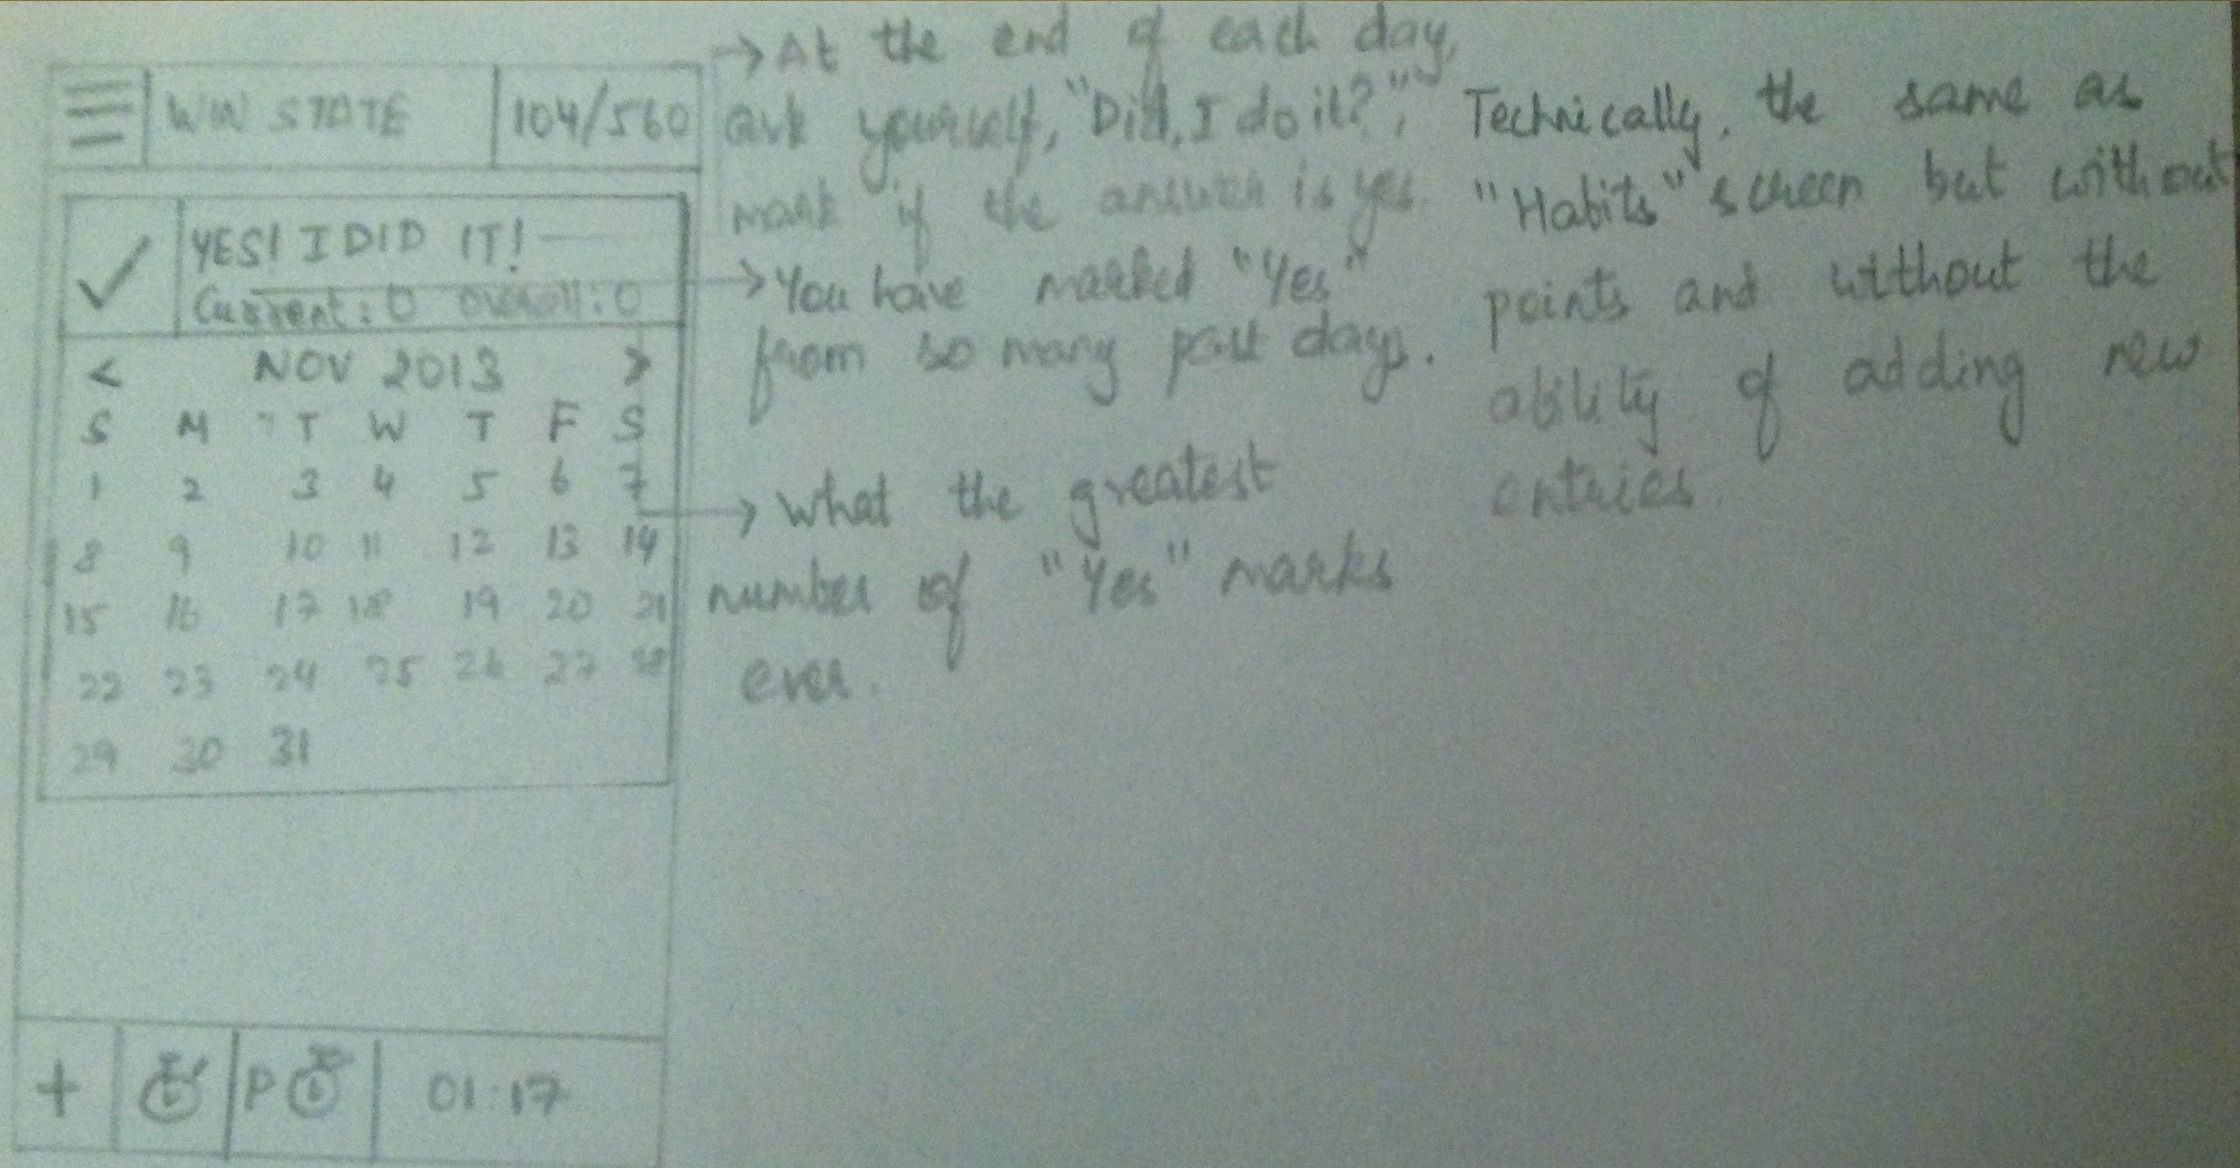 WIN STATE 104/560
YES! I DID IT!
Current: 0 Overall: 0
< NOV 2013 >
S M T W T F S
1 2 3 4 5 6 7
8 9 10 11 12 13 14
15 16 17 18 19 20 21
22 23 24 25 26 27 28
29 30 31
+ P 01:17
→ At the end of each day,
ask yourself, "Did I do it?",
mark if the answer is yes.
→ You have marked "Yes"
from so many past days.
→ What the greatest
number of "Yes" marks
ever.
Technically, the same as
"Habits" screen but without
points and without the
ability of adding new
entries.